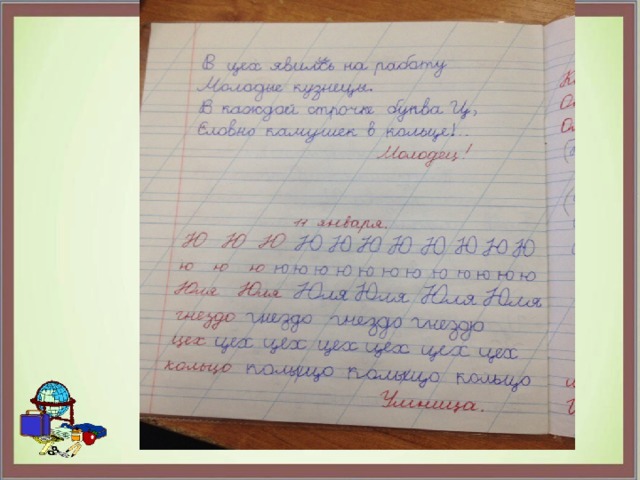 В цех явились на работу
Молодые кузнецы.
В каждой строчке буква Ц,
Словно камушек в кольце!..
Молодец!
11 января.
Ю Ю Ю Ю Ю Ю Ю Ю Ю Ю Ю
ю ю ю ю ю ю ю ю ю ю ю ю ю ю
Юля Юля Юля Юля Юля Юля
гнездо гнездо гнездо гнездо
цех цех цех цех цех цех цех
кольцо кольцо кольцо кольцо
Умница.